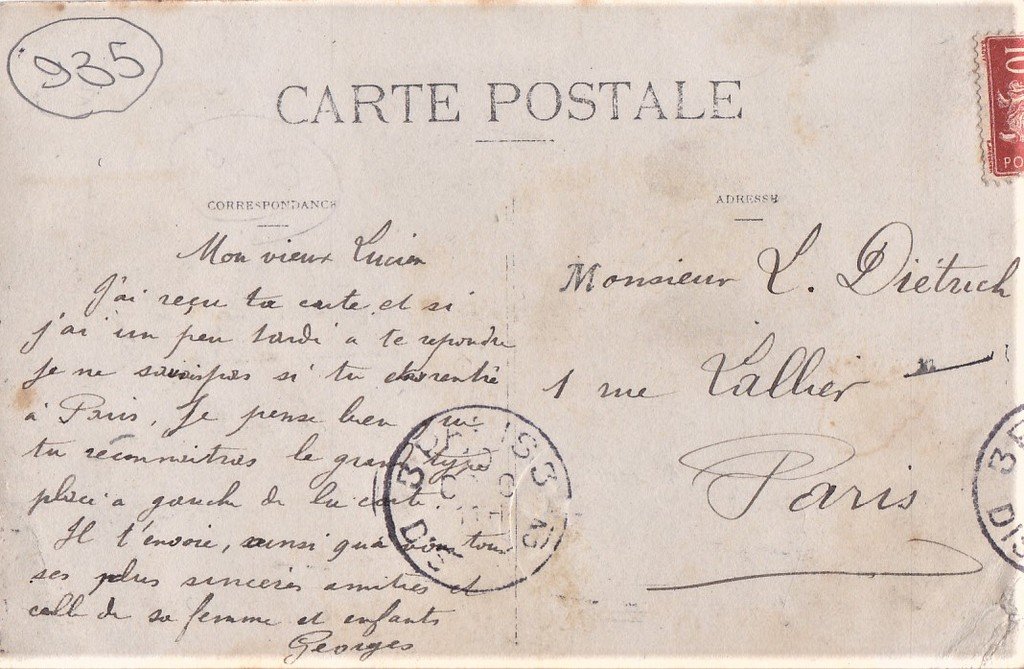 935
CARTE POSTALE
10
PO
CORRESPONDANCE
ADRESSE
Mon vieux Lucien
J'ai reçu ta carte et si
j'ai un peu tardi a te repondre
Je ne savais pas si tu etais rentré
à Paris, Je pense bien que
tu réconnaitras le grand type
placé a gauche de la carte
Il t'envoie, ainsi qu'a vous tous
ses plus sincères amitiés et
celle de sa femme et enfants
Georges
Monsieur L. Diétrich
1 rue Lallier
Paris
PARIS
3
3
DIS
3
DIS